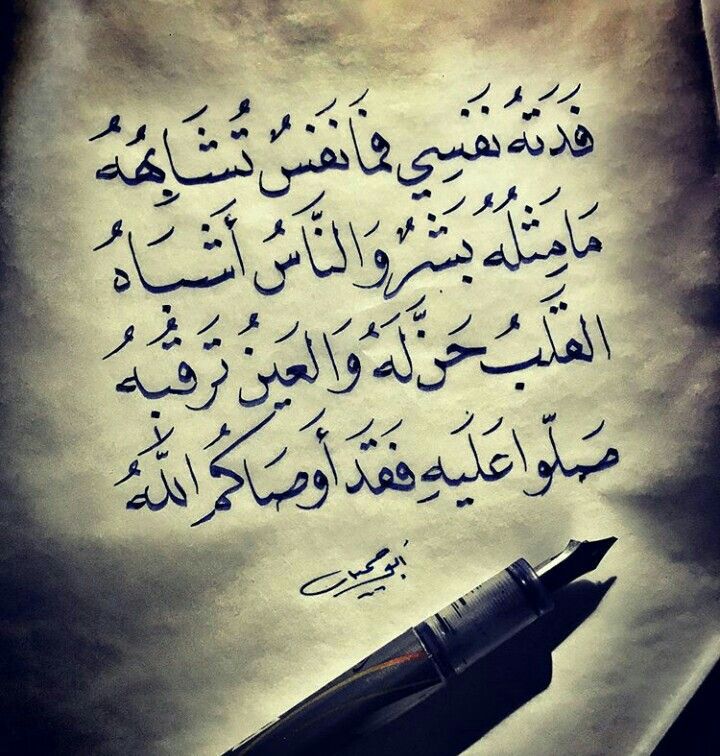 فَدَتهُ نَفسِي فَمَا نَفسٌ تُشَابِهُهُ
مَا مِثلُهُ بَشَرٌ وَالنَّاسُ أَشبَاهُ
القَلبُ حَنَّ لَهُ وَالعَينُ تَرقُبُهُ
صَلّوا عَلَيهِ فَقَد أَوصَاكُمُ اللَّهُ